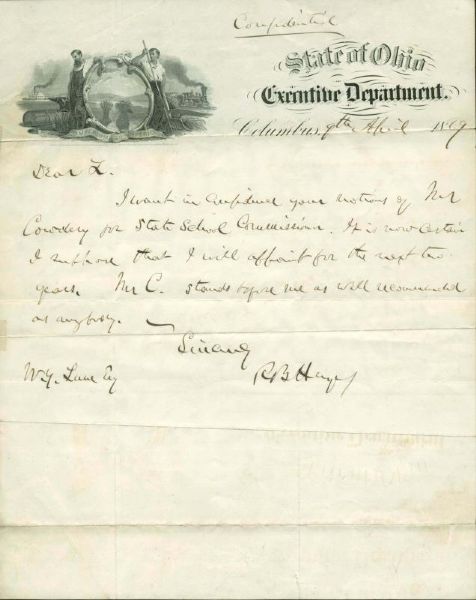 Confidential
State of Ohio
Executive Department.
Columbus, 9th April 1869
Dear L.
I want in confidence your notions of Mr
Cowdery for State School Commissioner. It is now certain
I suppose that I will appoint for the next two
years. Mr C. stands before me as well recommended
as anybody. —
Sincerely
R B Hayes
W. G. Lane Esq